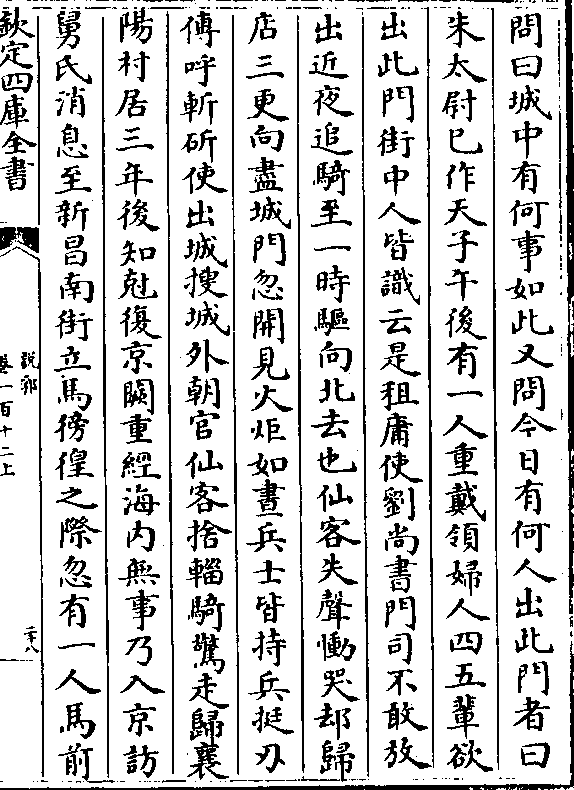 問曰城中有何事如此又問今日有何人出此門者曰
朱太尉已作天子午後有一人重戴領婦人四五輩欲
出此門街中人皆識云是租庸使劉尚書門司不敢放
出近夜追騎至一時驅向北去也仙客失聲慟哭却歸
店三更向盡城門忽開見火炬如晝兵士皆持兵挺刃
傳呼斬斫使出城搜城外朝官仙客捨輜騎驚走歸襄
陽村居三年後知尅復京闕重經海内無事乃入京訪
舅氏消息至新昌南街立馬徬徨之際忽有一人馬前
欽定四庫全書
說郛
卷一百十二上
二十八